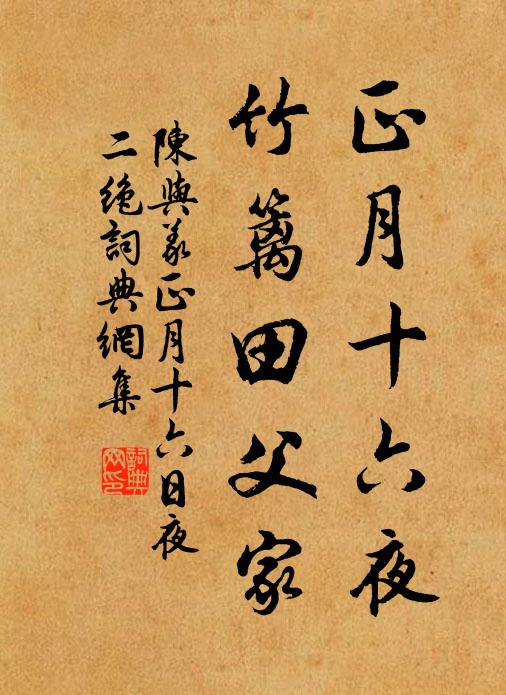 正月十六夜
竹篱田父家
陳與義正月十六日夜
二絶詞典網集
詞典網印